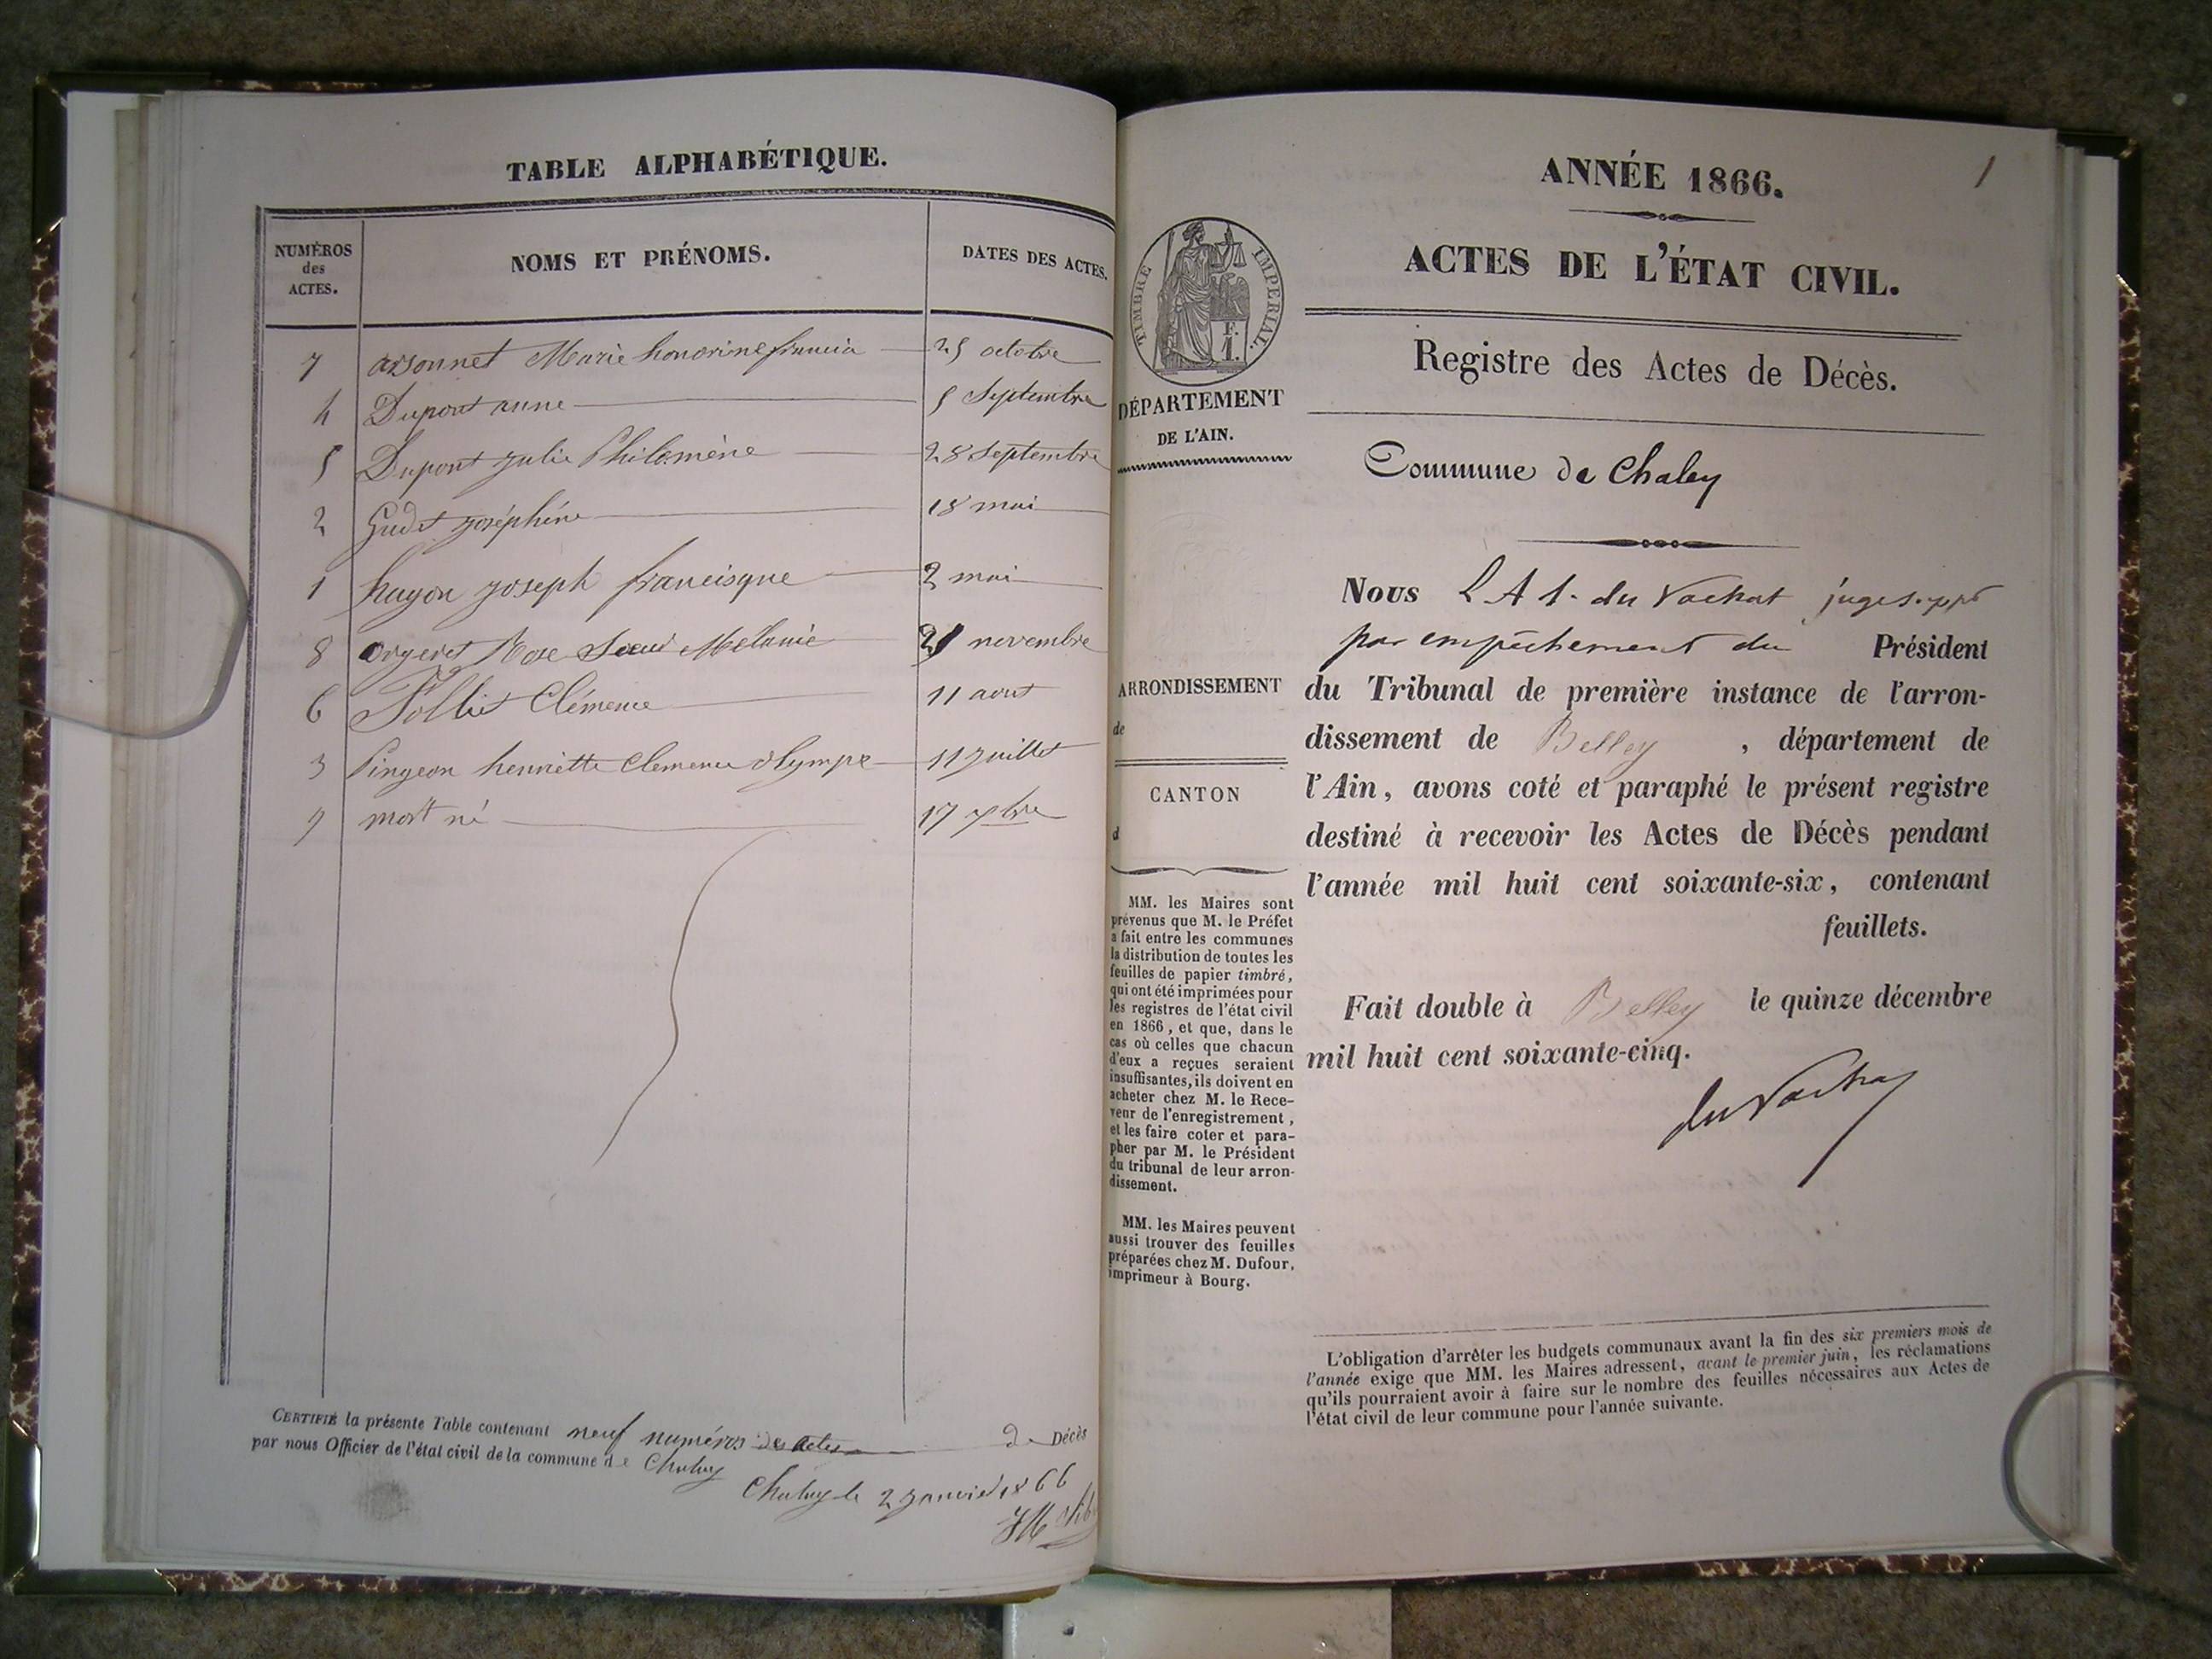 TABLE ALPHABÉTIQUE.
NUMÉROS
des
ACTES.
NOMS ET PRÉNOMS.
DATES DES ACTES.
7 Marie honorine francia 25 octobre
4 Dupont anne 5 Septembre
5 Dupont Julie Philomène 28 Septembre
2 Gudet Joséphine 18 mai
1 hugon joseph francisque 2 mai
8 orgeret Rose Soeur Mélanie 21 novembre
6 Clémence 11 aout
3 Pingeon henriette Clemence olympe 11 Juillet
9 mort né 17 bre
CERTIFIÉ la présente Table contenant neuf numéros des actes de DÉCÈS
par nous Officier de l'état civil de la commune de Chaley
Chaley le 2 Janvier 1866
1
ANNÉE 1866.
ACTES DE L'ÉTAT CIVIL.
Registre des Actes de Décès.
TIMBRE IMPERIAL.
F.
1.
DÉPARTEMENT
DE L'AIN.
ARRONDISSEMENT
de
CANTON
d
MM. les Maires sont
prévenus que M. le Préfet
a fait entre les communes
la distribution de toutes les
feuilles de papier timbré,
qui ont été imprimées pour
les registres de l'état civil
en 1866, et que, dans le
cas où celles que chacun
d'eux a reçues seraient
insuffisantes, ils doivent en
acheter chez M. le Rece-
veur de l'enregistrement,
et les faire coter et para-
pher par M. le Président
du tribunal de leur arron-
dissement.
MM. les Maires peuvent
aussi trouver des feuilles
préparées chez M. Dufour,
imprimeur à Bourg.
Commune de Chaley
Nous L A 1. du Vachat juge suppt
par empêchement du Président
du Tribunal de première instance de l'arron-
dissement de Belley, département de
l'Ain, avons coté et paraphé le présent registre
destiné à recevoir les Actes de Décès pendant
l'année mil huit cent soixante-six, contenant
feuillets.
Fait double à Belley le quinze décembre
mil huit cent soixante-cinq.
du Vachat
L'obligation d'arrêter les budgets communaux avant la fin des six premiers mois de
l'année exige que MM. les Maires adressent, avant le premier juin, les réclamations
qu'ils pourraient avoir à faire sur le nombre des feuilles nécessaires aux Actes de
l'état civil de leur commune pour l'année suivante.